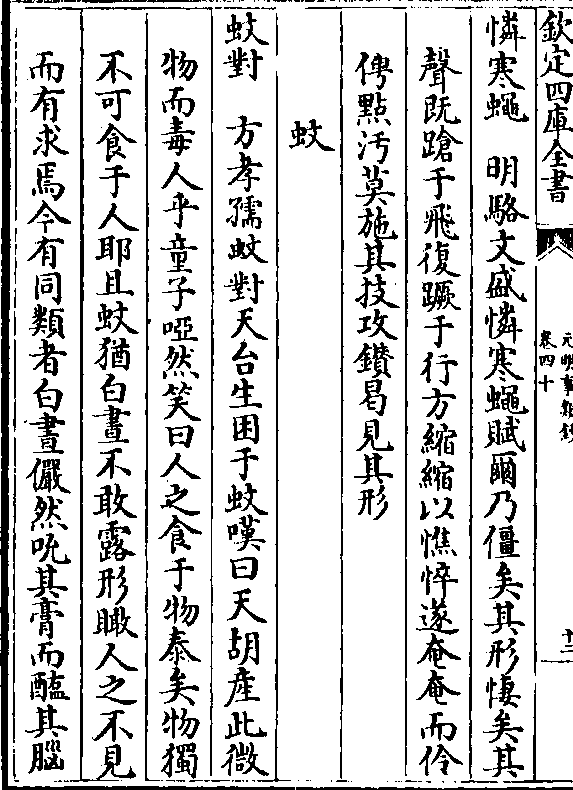 欽定四庫全書
元明事類鈔
卷四十
十二
憐寒蠅　明駱文盛憐寒蠅賦爾乃僵矣其形悽矣其
聲既蹌于飛復蹶于行方縮縮以憔悴遂奄奄而伶
俜點汚莫施其技攻鑽曷見其形
蚊
蚊對　方孝孺蚊對天台生困于蚊嘆曰天胡產此微
物而毒人乎童子啞然笑曰人之食于物泰矣物獨
不可食于人耶且蚊猶白晝不敢露形瞰人之不見
而有求焉今有同類者白晝儼然吮其膏而醢其腦